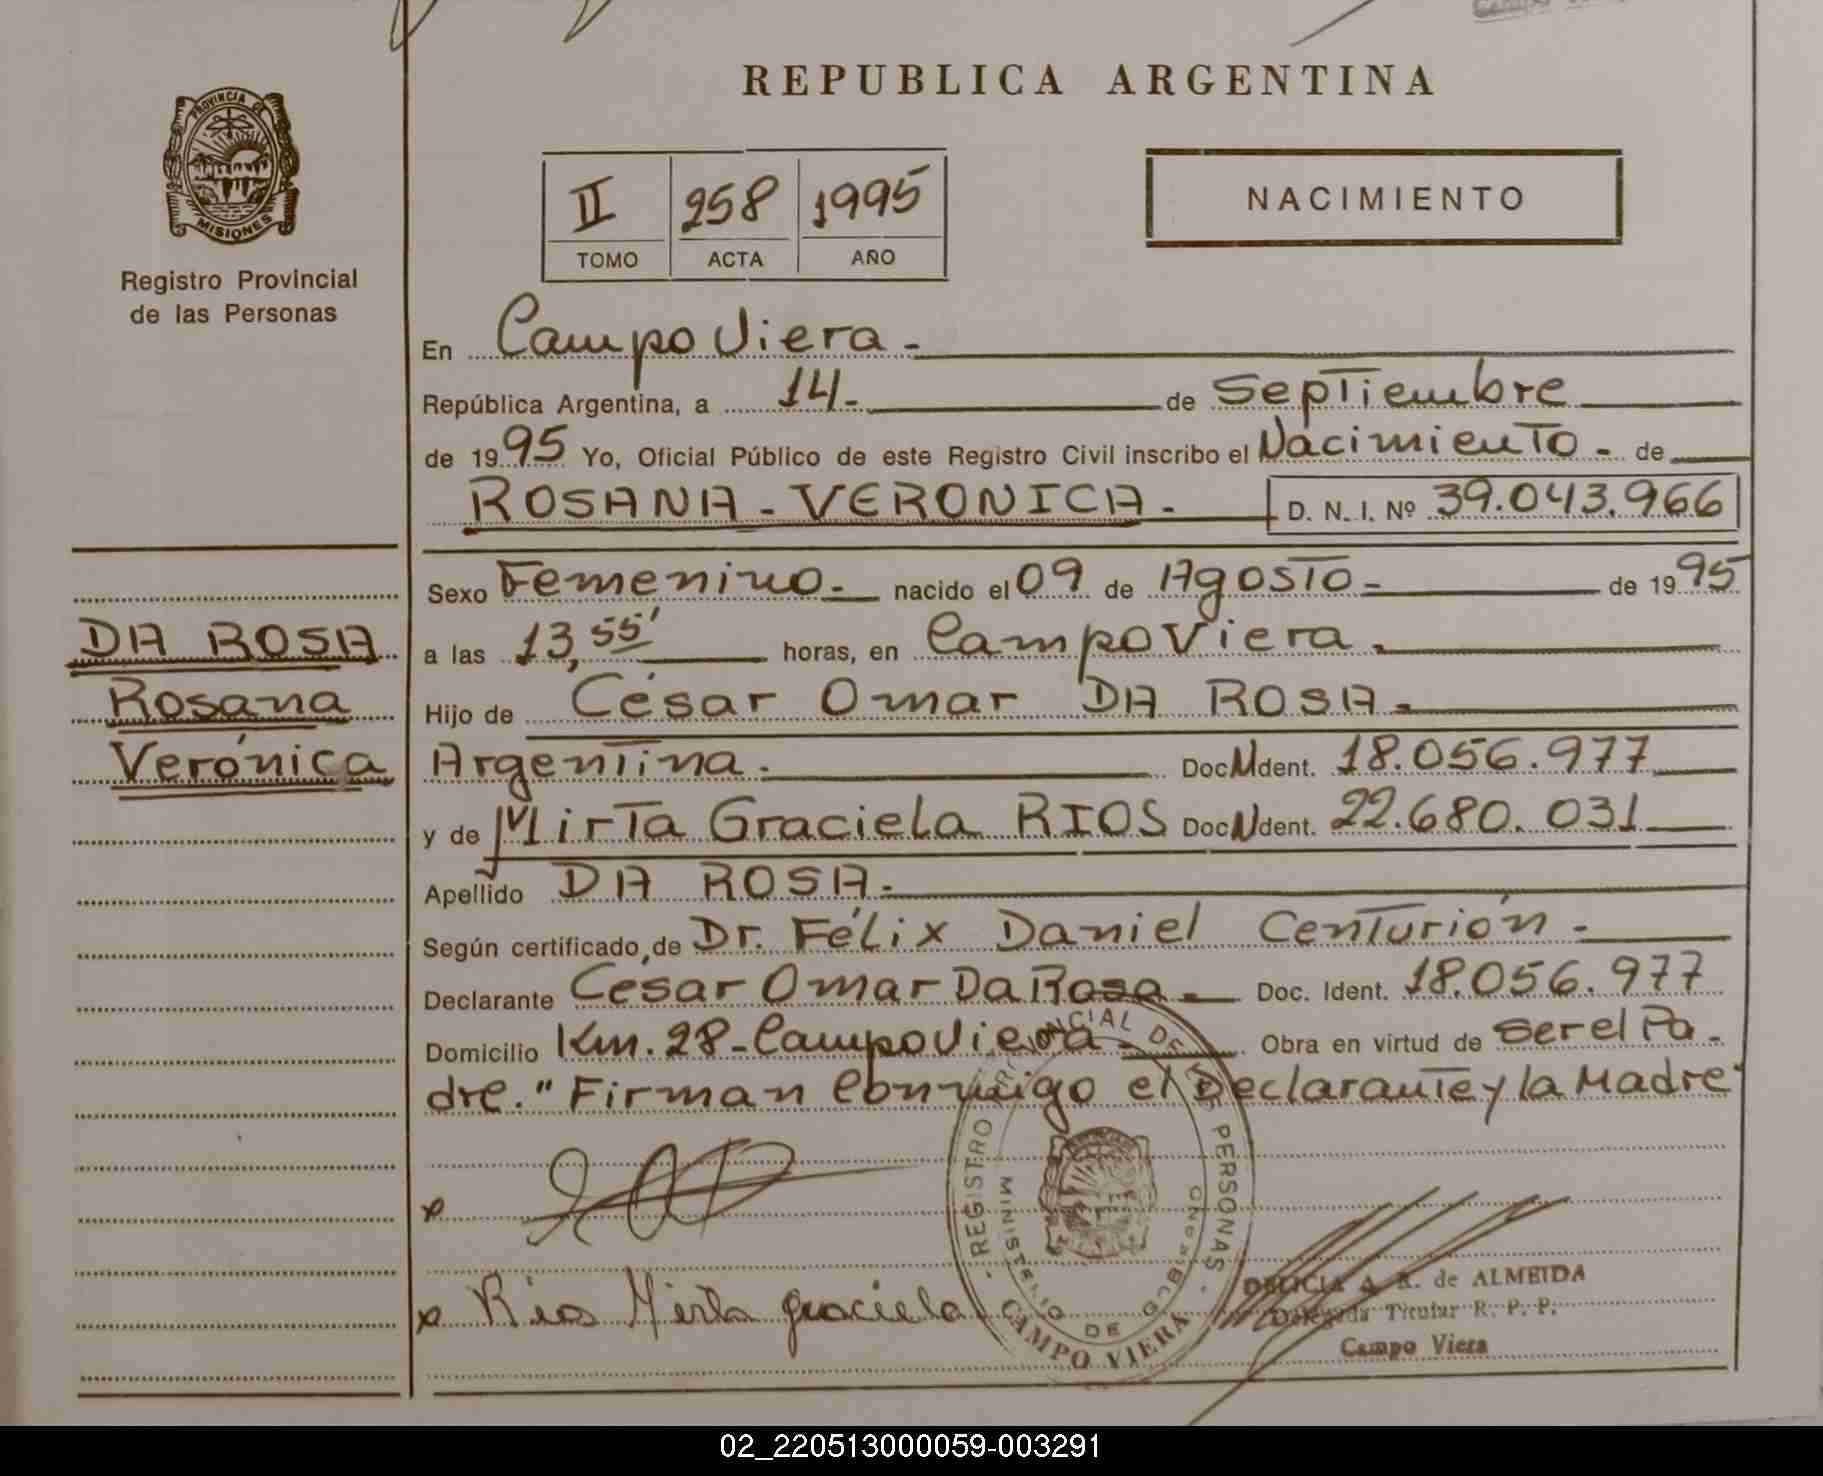 REPUBLICA ARGENTINA
PROVINCIA DE
MISIONES
Registro Provincial
de las Personas
II 258 1995
TOMO ACTA AÑO
NACIMIENTO
En Campo Viera -
República Argentina, a 14- de Septiembre
de 1995 Yo, Oficial Público de este Registro Civil inscribo el Nacimiento - de
ROSANA - VERONICA - D. N. I. Nº 39.043.966
Sexo Femenino - nacido el 09 de Agosto - de 1995
DA ROSA
Rosana
Verónica
a las 13,55' horas, en Campo Viera -
Hijo de César Omar DA ROSA -
Argentina - Doc N Ident. 18.056.977
y de Mirta Graciela RIOS Doc N Ident. 22.680.031
Apellido DA ROSA -
Según certificado, de Dr. Félix Daniel Centurión -
Declarante César Omar Da Rosa - Doc. Ident. 18.056.977
Domicilio Km. 28 - Campo Viera - Obra en virtud de ser el Pa-
dre. "Firman Conmigo el Declarante y la Madre"
x
x Rios Mirta graciela
REGISTRO PROVINCIAL DE LAS PERSONAS
MINISTERIO DE GOBIERNO
CAMPO VIERA
DELICIA A. R. de ALMEIDA
Delegada Titular R. P. P.
Campo Viera
02_220513000059-003291